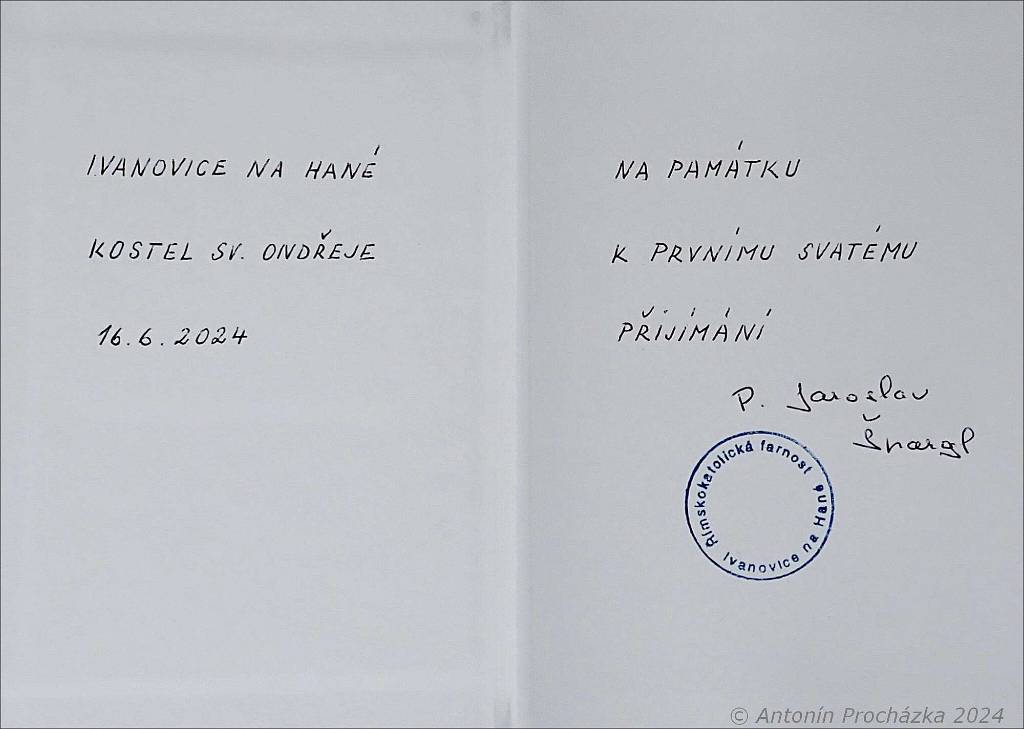 IVANOVICE NA HANÉ
KOSTEL SV. ONDŘEJE
16.6.2024
NA PAMÁTKU
K PRVNÍMU SVATÉMU
PŘIJÍMÁNÍ
P. Jaroslav
Špargl
Římskokatolická farnost
Ivanovice na Hané
© Antonín Procházka 2024